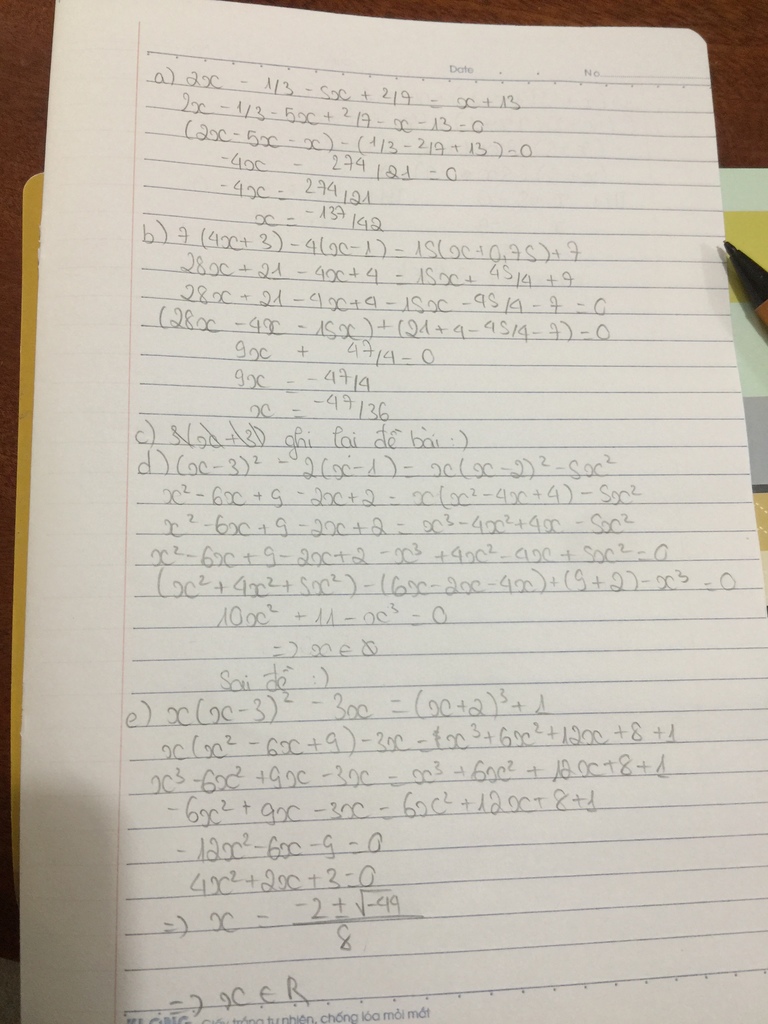 Date No
a) 2x - 1/3 - 5x + 2/7 = x + 13
2x - 1/3 - 5x + 2/7 - x - 13 = 0
(2x - 5x - x) - (1/3 - 2/7 + 13) = 0
-4x - 274/21 = 0
-4x = 274/21
x = -137/42
b) 7(4x + 3) - 4(x - 1) = 15(x + 0,75) + 7
28x + 21 - 4x + 4 = 15x + 45/4 + 7
28x + 21 - 4x + 4 - 15x - 45/4 - 7 = 0
(28x - 4x - 15x) + (21 + 4 - 45/4 - 7) = 0
9x + 47/4 = 0
9x = -47/4
x = -47/36
c) ghi lại đề bài :)
d) (x - 3)² - 2(x - 1) = x(x - 2)² - 5x²
x² - 6x + 9 - 2x + 2 = x(x² - 4x + 4) - 5x²
x² - 6x + 9 - 2x + 2 = x³ - 4x² + 4x - 5x²
x² - 6x + 9 - 2x + 2 - x³ + 4x² - 4x + 5x² = 0
(x² + 4x² + 5x²) - (6x - 2x - 4x) + (9 + 2) - x³ = 0
10x² + 11 - x³ = 0
=> x ∈ ∅
Sai đề :)
e) x(x - 3)² - 3x = (x + 2)³ + 1
x(x² - 6x + 9) - 3x = x³ + 6x² + 12x + 8 + 1
x³ - 6x² + 9x - 3x = x³ + 6x² + 12x + 8 + 1
-6x² + 9x - 3x = 6x² + 12x + 8 + 1
-12x² - 6x - 9 = 0
4x² + 2x + 3 = 0
=> x = (-2 ± √-44)/8
=> x ∈ R
Giấy trắng tự nhiên, chống lóa mỏi mắt